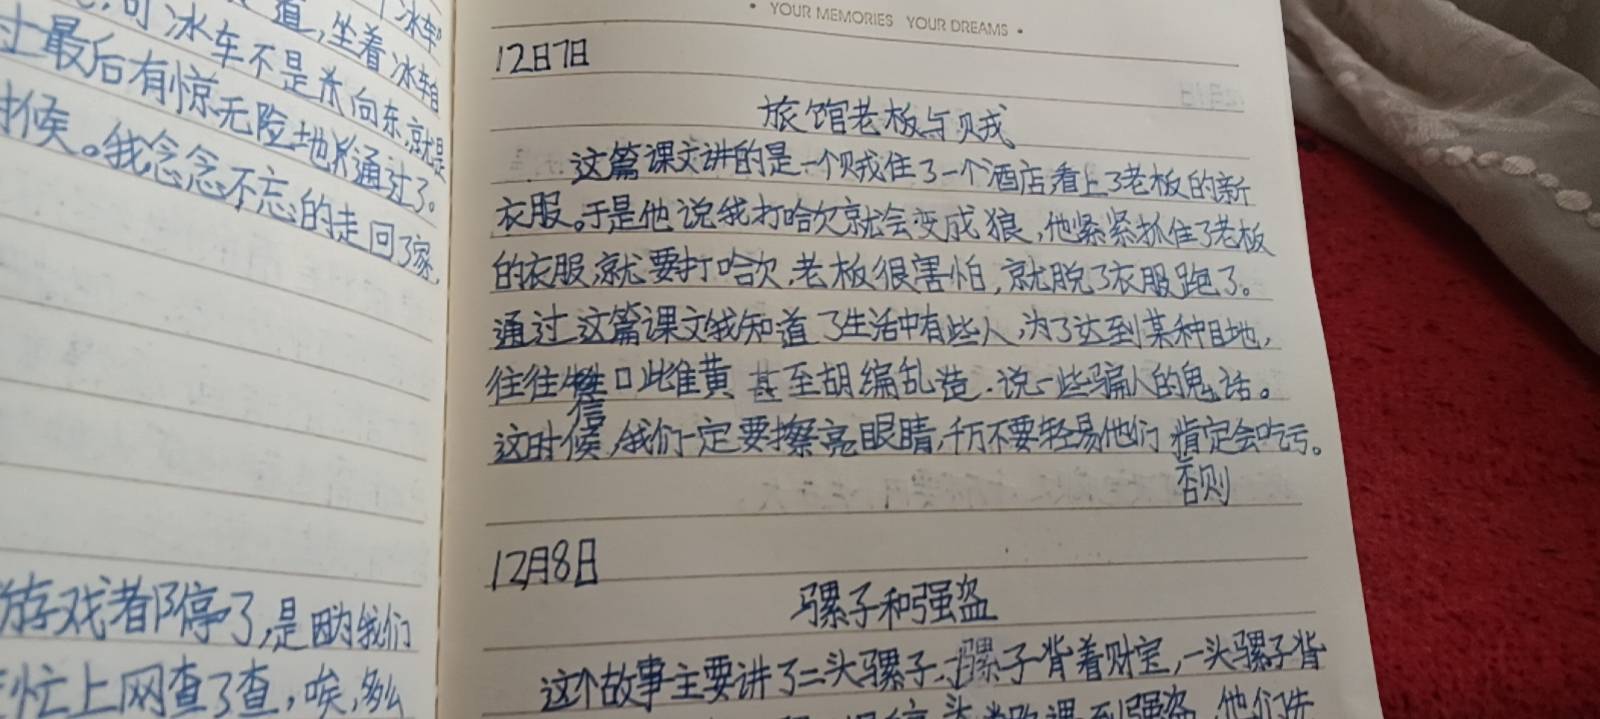 冰车
道,坐着冰车
可冰车不是 向东,就是
最后有惊无险地 通过了。
时候。我念念不忘的走回了家,
游戏者都停了,是因为我们
忙上网查了查,唉,多么
• YOUR MEMORIES YOUR DREAMS •
12日7日
旅馆老板与贼
这篇课文讲的是一个贼住了一个酒店,看上了老板的新
衣服。于是他说我打哈欠就会变成狼,他紧紧抓住了老板
的衣服,就要打哈欠,老板很害怕,就脱了衣服跑了。
通过这篇课文我知道了生活中有些人,为了达到某种目地,
往往 口雌黄 甚至胡编乱造.说一些骗人的鬼话。
信
这时候,我们一定要擦亮眼睛,千万不要轻易他们 肯定会吃亏。
否则
12月8日
骡子和强盗
这个故事主要讲了二头骡子,一骡子背着财宝,一头骡子背
强盗,他们先